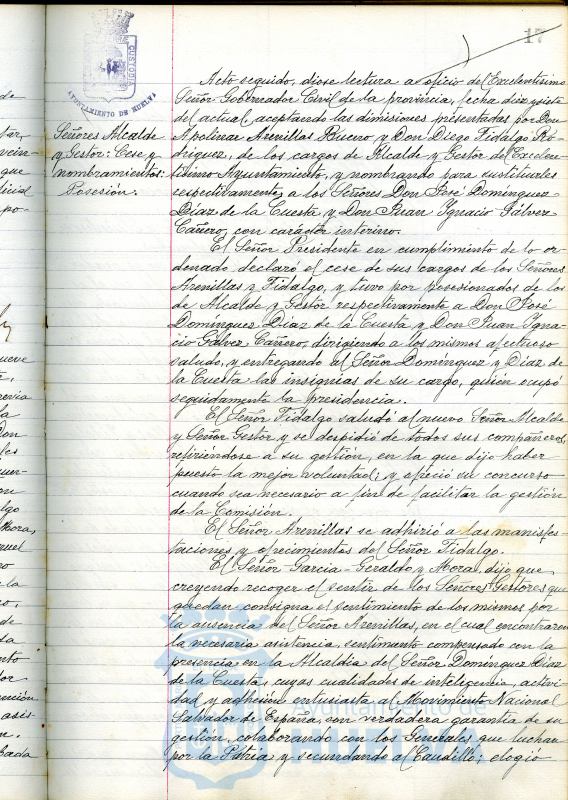 17
CUSTODIA
AYUNTAMIENTO DE HUELVA
Señores Alcalde
y Gestor: Cese y
nombramientos:
Posesión.
Acto seguido, dióse lectura a oficio del Excelentísimo
Señor Gobernador Civil de la provincia, fecha diez y siete
del actual, aceptando las dimisiones presentadas por Don
Apolinar Arenillas Buero y Don Diego Fidalgo Ro-
dríguez, de los cargos de Alcalde y Gestor del Excelen-
tísimo Ayuntamiento, y nombrando para sustituirles
respectivamente, a los Señores Don José Domínguez
Díaz de la Cuesta, y Don Juan Ignacio Gálvez
Cañero, con carácter interino.
El Señor Presidente en cumplimiento de lo or-
denado declaró el cese de sus cargos de los Señores
Arenillas y Fidalgo, y tuvo por posesionados de los
de Alcalde y Gestor respectivamente a Don José
Domínguez Díaz de la Cuesta y Don Juan Igna-
cio Gálvez Cañero, dirigiendo a los mismos afectuoso
saludo, y entregando al Señor Domínguez y Díaz de
la Cuesta las insignias de su cargo, quien ocupó
seguidamente la presidencia.
El Señor Fidalgo saludó al nuevo Señor Alcalde
y Señor Gestor y se despidió de todos sus compañeros,
refiriéndose a su gestión, en la que dijo haber
puesto la mejor voluntad; y ofreció su concurso
cuando sea necesario a fin de facilitar la gestión
de la Comisión.
El Señor Arenillas se adhirió a las manifes-
taciones y ofrecimientos del Señor Fidalgo.
El Señor Garcia-Geraldo y Mora, dijo que
creyendo recoger el sentir de los Señores Gestores que
quedan, consigna el sentimiento de los mismos por
la ausencia del Señor Arenillas, en el cual encontraron
la necesaria asistencia, sentimiento compensado con la
presencia en la Alcaldía del Señor Domínguez Díaz
de la Cuesta, cuyas cualidades de inteligencia, activi-
dad y adhesión entusiasta al Movimiento Nacional
Salvador de España, son verdadera garantía de su
gestión, colaborando con los Generales que luchan
por la Patria y secundando al Caudillo; elogió
Ayuntamiento de
HUELVA